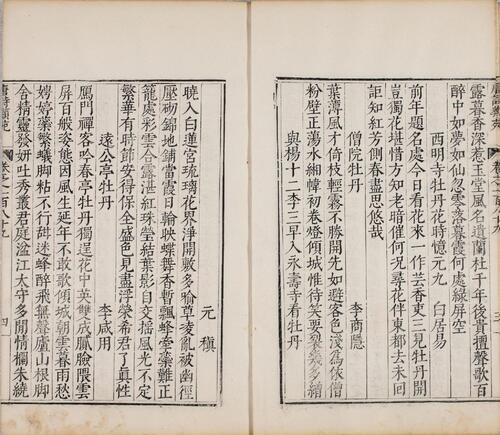 露暮香深惹玉堂風名遺蘭杜千年後貴擅聲歌百
醉中如夢如仙忽零落暮霞何處綠屏空
西明寺牡丹花時憶元九　白居易
前年題名處今日看花來一作芸香吏三見牡丹開
豈獨花堪惜方知老暗催何況尋花伴東都去未回
詎知紅芳側春盡思悠哉
僧院牡丹　李商隱
葉薄風才倚枝輕霧不勝開先如避客色淺為依僧
粉壁正蕩水緗幃初卷燈傾城惟待笑要裂幾多繒
與楊十二李三早入永壽寺看牡丹
元稹
曉入白蓮宮琉璃花界淨開敷多喻草凌亂被幽徑
壓砌錦地鋪當霞日輪映蝶舞香暫飄蜂牽蘂難正
籠處彩雲合露湛紅珠瑩結葉影自交搖風光不定
繁華有時節安得保全盛色見盡浮榮希君了真性
遠公亭牡丹　李咸用
鴈門禪客吟春亭牡丹獨逞花中英雙成膩臉偎雲
屏百般姿態因風生延年不敢歌傾城朝雲暮雨愁
娉婷蘂繁蟻脚粘不行甜迷蜂醉飛無聲廬山根脚
含精靈發妍吐秀叢君庭湓江太守多閒情欄朱繞